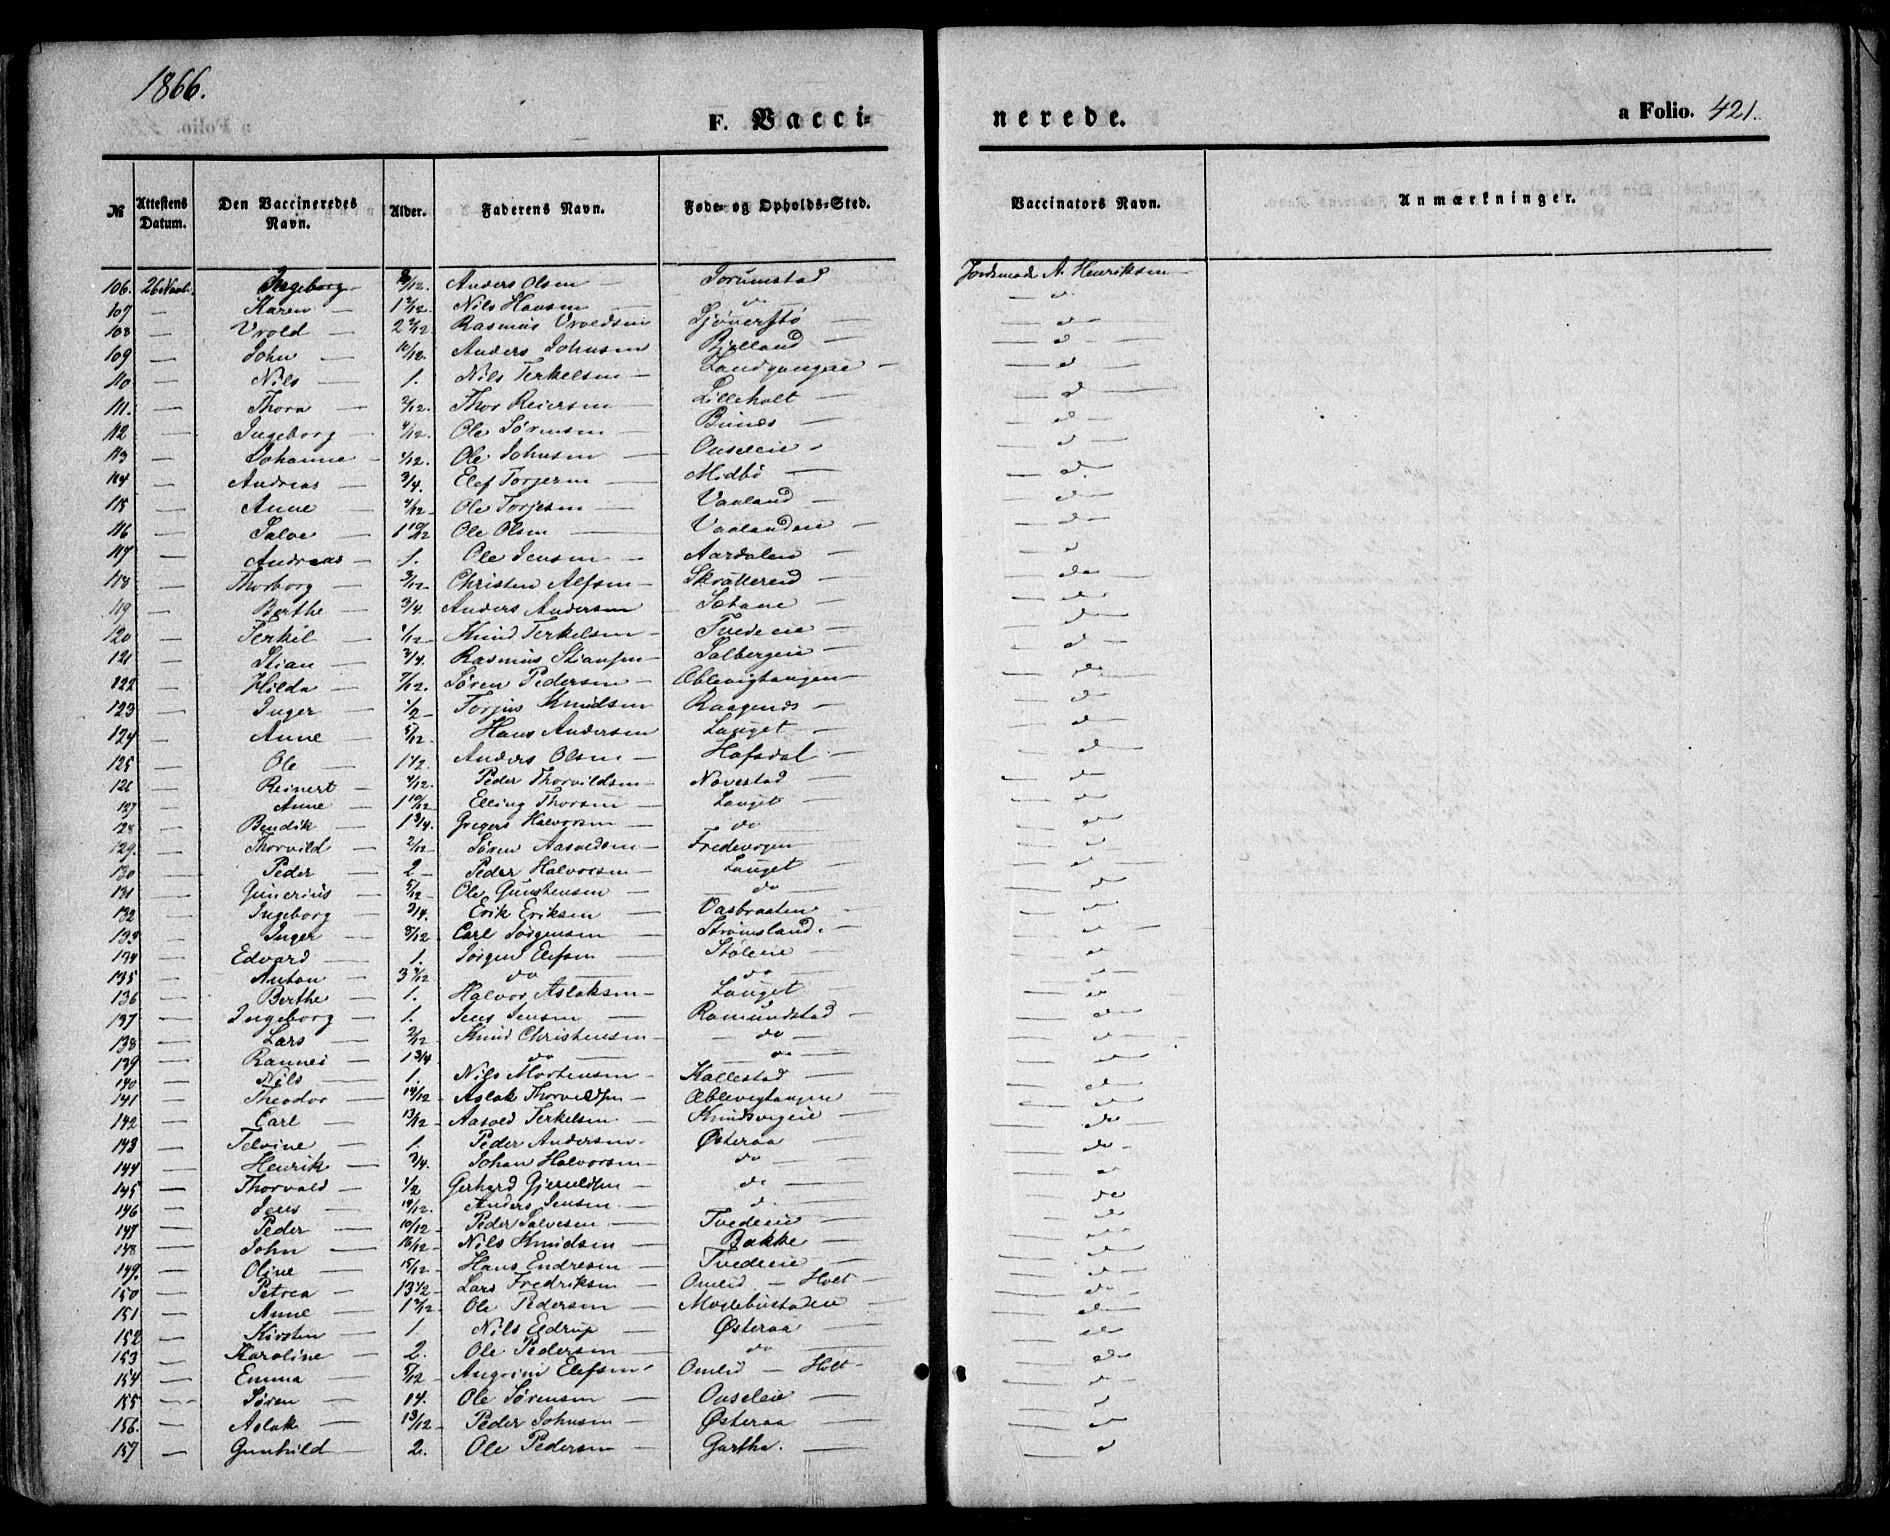 1866.
F. Vacci=
nerede.
a Folio. 421.
№ Attestens Datum. Den Vaccineredes Navn. Alder. Faderens Navn. Føde- og Opholds-Sted. Vaccinators Navn. Anmærkninger.
106. 26 Novbr. Ingeborg Anders Olsen — Jorumstad Jordemode A. Henriksen —
107 — Karen — 1 Nils Hansen — do — d —
108 — Vrold — 2 2/12 Rasmus Vroldsen Sjøverstø — d —
109 — John — 10/12. Anders Johnsen Bjelland — d —
110 — Nils — 1. Nils Terkelsen — Landgangeie — d —
111. — Thora — 2/12. Thor Reiersen — Lilleholt — d —
112 — Ingeborg — 4/12. Ole Sørensen — Bunes — d —
113 — Johanne — 4/12. Ole Johnsen — Ouseleie — d —
114 — Andreas — 3/4. Elef Torjesen — Midbö — d —
115 — Anne — 4/12 Ole Torjesen — Vaaland — d —
116 — Salve — 1 10/12 Ole Olsen — Vaalandeie — d —
117 — Andreas — 1. Ole Jensen — Aardalen — d
118 — Thorborg — 3/12 Christen Alfsen — Skrätterend — do —
119 — Berthe — 3/4. Anders Andersen — do —
120 — Terkil — 1/12 Knud Terkelsen — Tvedeeie — d —
121 — Stian — 3/4. Rasmus Stiansen — Salbergeie — d —
122 — Hilda — 7/12. Søren Pedersen — Æblevigtangen — do
123 — Inger — 1/2 — Torjus Knudsen Raagenes — d —
124 — Anne — 5/12 Hans Andersen Lauget — d —
125 — Ole — 1 1/2. Anders Olsen — Hafsdal — d —
126 — Reinert — 4/12. Peder Thorvildsen — Navestad — d —
127 — Anne — 1 10/12 Elling Thorsen — Lauget — d —
128 — Bendik — 1 3/4. Gregers Halvorsen — do — d —
129. — Thorvild — 2/12 Søren Aasvoldsen — d —
130 — Peder — 2 — Peder Halvorsen — Lauget d —
131 — Gunerius — 5/12 — Ole Gunstensen — do — d —
132 — Ingeborg — 3/4. Erik Eriksen — Oasbraaten — d —
133 — Inger — 8/12 Carl Jørgensen — Strømsland. — d —
134 — Edvard — 1. Jørgen Elefsen — Støleeie — d
135 — Anton — 3 4/12 do — do — d —
136 — Berthe — 1. Halvor Aslaksen — Lauget — d
137 — Ingeborg — 1. Jens Jensen — Ramundstad — do —
138 — Lars — 2/12 Knud Christensen — do — d —
139 — Rannei — 1 3/4 do — do — d —
140 — Nils — 1. Nils Mortensen — Kallestad — d —
141 — Theodor — 14/12 — Aslak Thorvildsen — Æblevigtangen — d —
142 — Carl — 13/12 — Aasold Terkelsen — Knudsvigeie — do —
143 — Telvine — 1. Peder Andersen — Østeraa — do —
144 — Henrik — 3/4. Johan Halvorsen — do — d
145 — Thorvald — 1/2 Gerhard Gjeruldsen — do — do
146 — Jens — 14/12. Anders Jensen. — d. — do
147 — Peder — 10/12 — Peder Salvesen — Tvedeeie — do
148 — John — 16/12 — Nils Knudsen — Bakke — d —
149. — Oline — 15/12 — Hans Endresen — Tvedeeie — d —
150 — Petrea — 13 1/2 — Lars Fredriksen — Omlid — Holt — do —
151 — Anne — Ole Pedersen — d —
152 — Kirsten — 1. Nils Eldrup — Østeraa — do
153 — Karoline — 2. Ole Pedersen — do — do
154 — Emma — 5/12 Elefsen Omlid — Holt — d —
155 — Søren — 14. Ole Sørensen — Ouseleie — d
156. — Aslak — 13/12 — Peder Johnsen — Østeraa — d —
157 — Gunhild — 2. Ole Pedersen — Gartha. — d